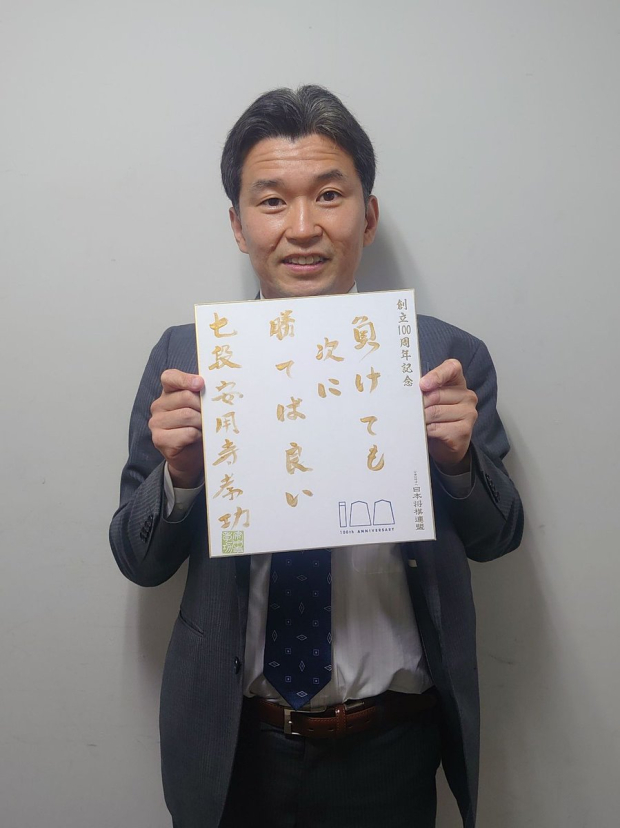 創立100周年記念
負けても
次に
勝てば良い
七段 安用寺孝功
100th ANNIVERSARY
日本将棋連盟